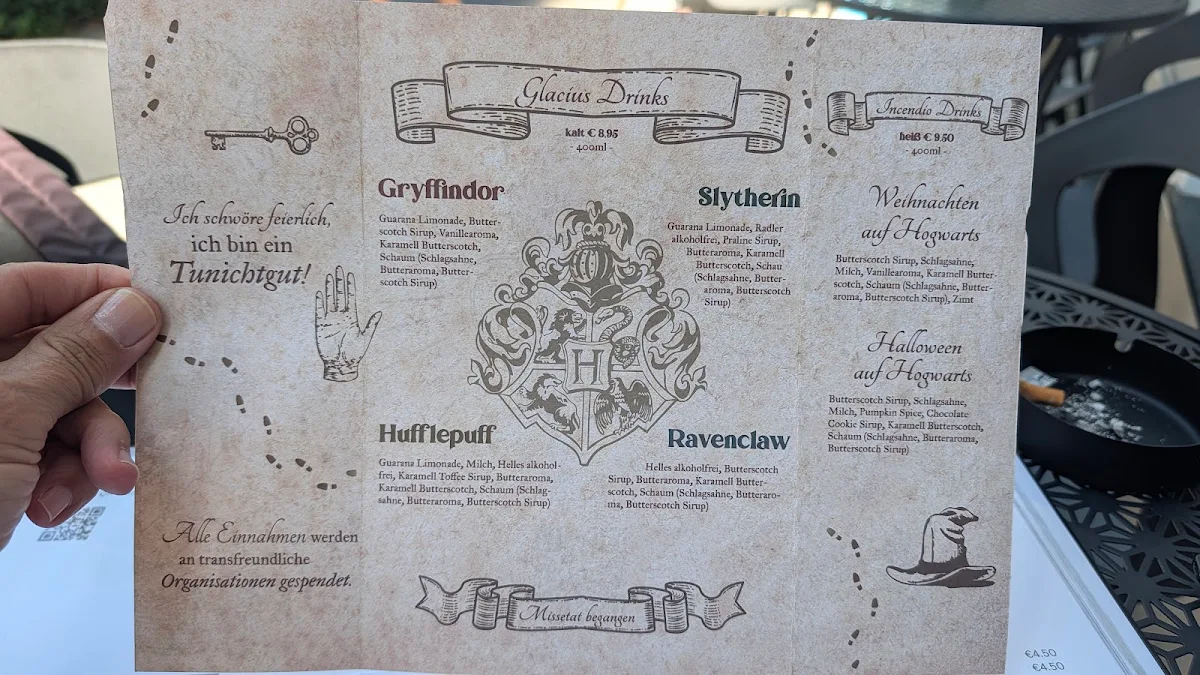 Ich schwöre feierlich,
ich bin ein
Tunichtgut!
Alle Einnahmen werden
an transfreundliche
Organisationen gespendet.
Glacius Drinks
kalt € 8.95
- 400ml -
Gryffindor
Guarana Limonade, Butter-
scotch Sirup, Vanillearoma,
Karamell Butterscotch,
Schaum (Schlagsahne,
Butteraroma, Butter-
scotch Sirup)
Slytherin
Guarana Limonade, Radler
alkoholfrei, Praline Sirup,
Butteraroma, Karamell
Butterscotch, Schau
(Schlagsahne, Butter-
aroma, Butterscotch
Sirup)
H
Hufflepuff
Guarana Limonade, Milch, Helles alkohol-
frei, Karamell Toffee Sirup, Butteraroma,
Karamell Butterscotch, Schaum (Schlag-
sahne, Butteraroma, Butterscotch Sirup)
Ravenclaw
Helles alkoholfrei, Butterscotch
Sirup, Butteraroma, Karamell Butter-
scotch, Schaum (Schlagsahne, Butteraro-
ma, Butterscotch Sirup)
Missetat begangen
Incendio Drinks
heiß € 9.50
- 400ml -
Weihnachten
auf Hogwarts
Butterscotch Sirup, Schlagsahne,
Milch, Vanillearoma, Karamell Butter-
scotch, Schaum (Schlagsahne, Butter-
aroma, Butterscotch Sirup), Zimt
Halloween
auf Hogwarts
Butterscotch Sirup, Schlagsahne,
Milch, Pumpkin Spice, Chocolate
Cookie Sirup, Karamell Butterscotch,
Schaum (Schlagsahne, Butteraroma,
Butterscotch Sirup)
€4.50
€4.50